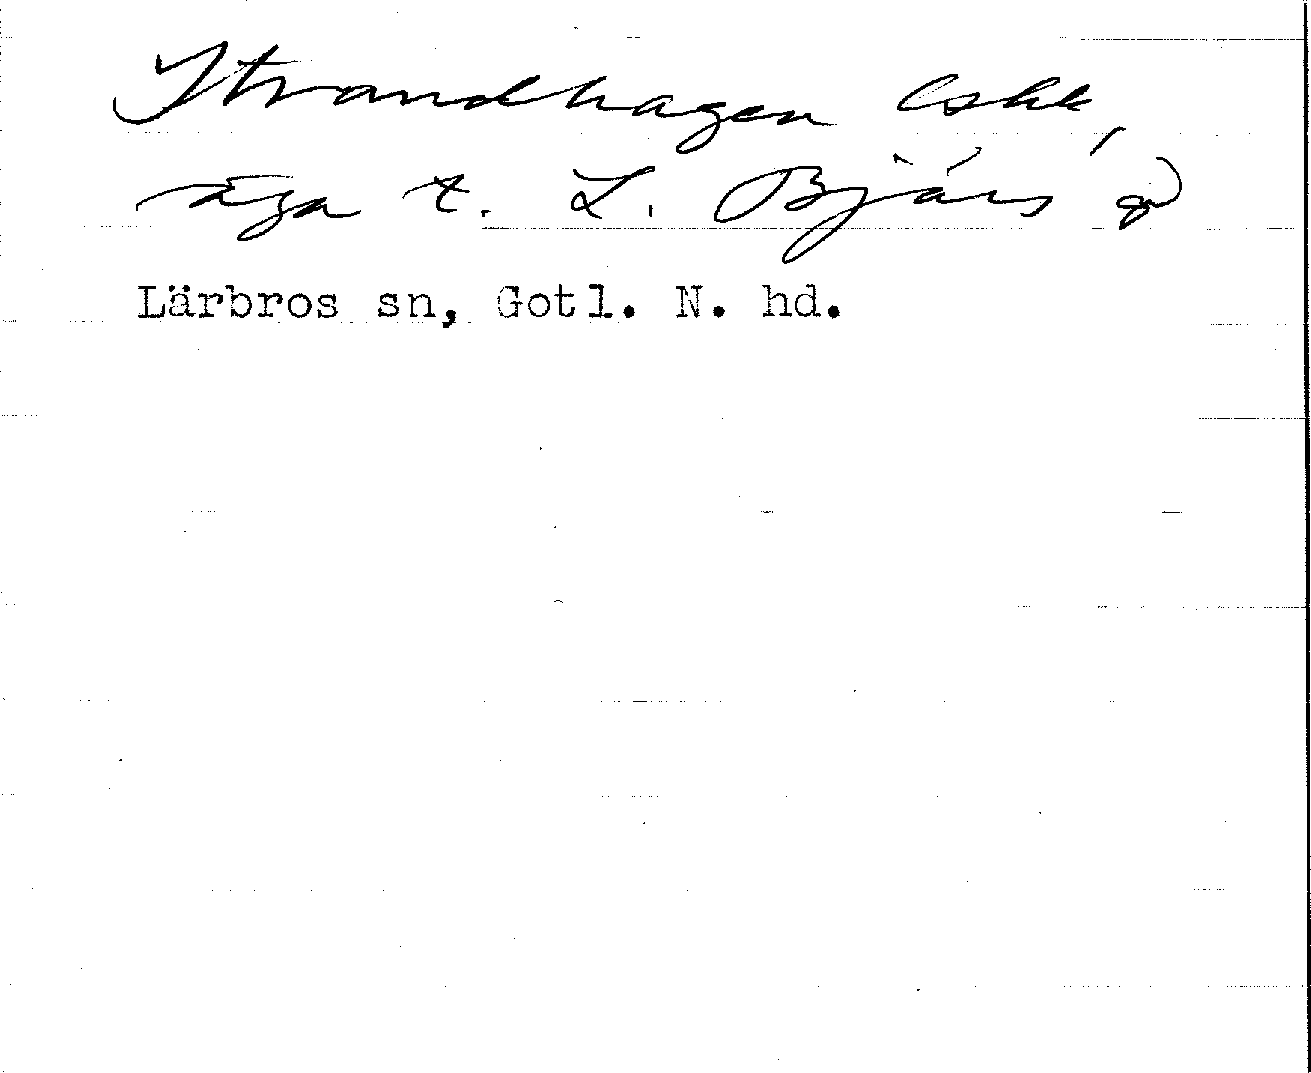 Strandhagen Eskk,
äga t. L. Bjärs gd
Lärbros sn, Gotl. N. hd.